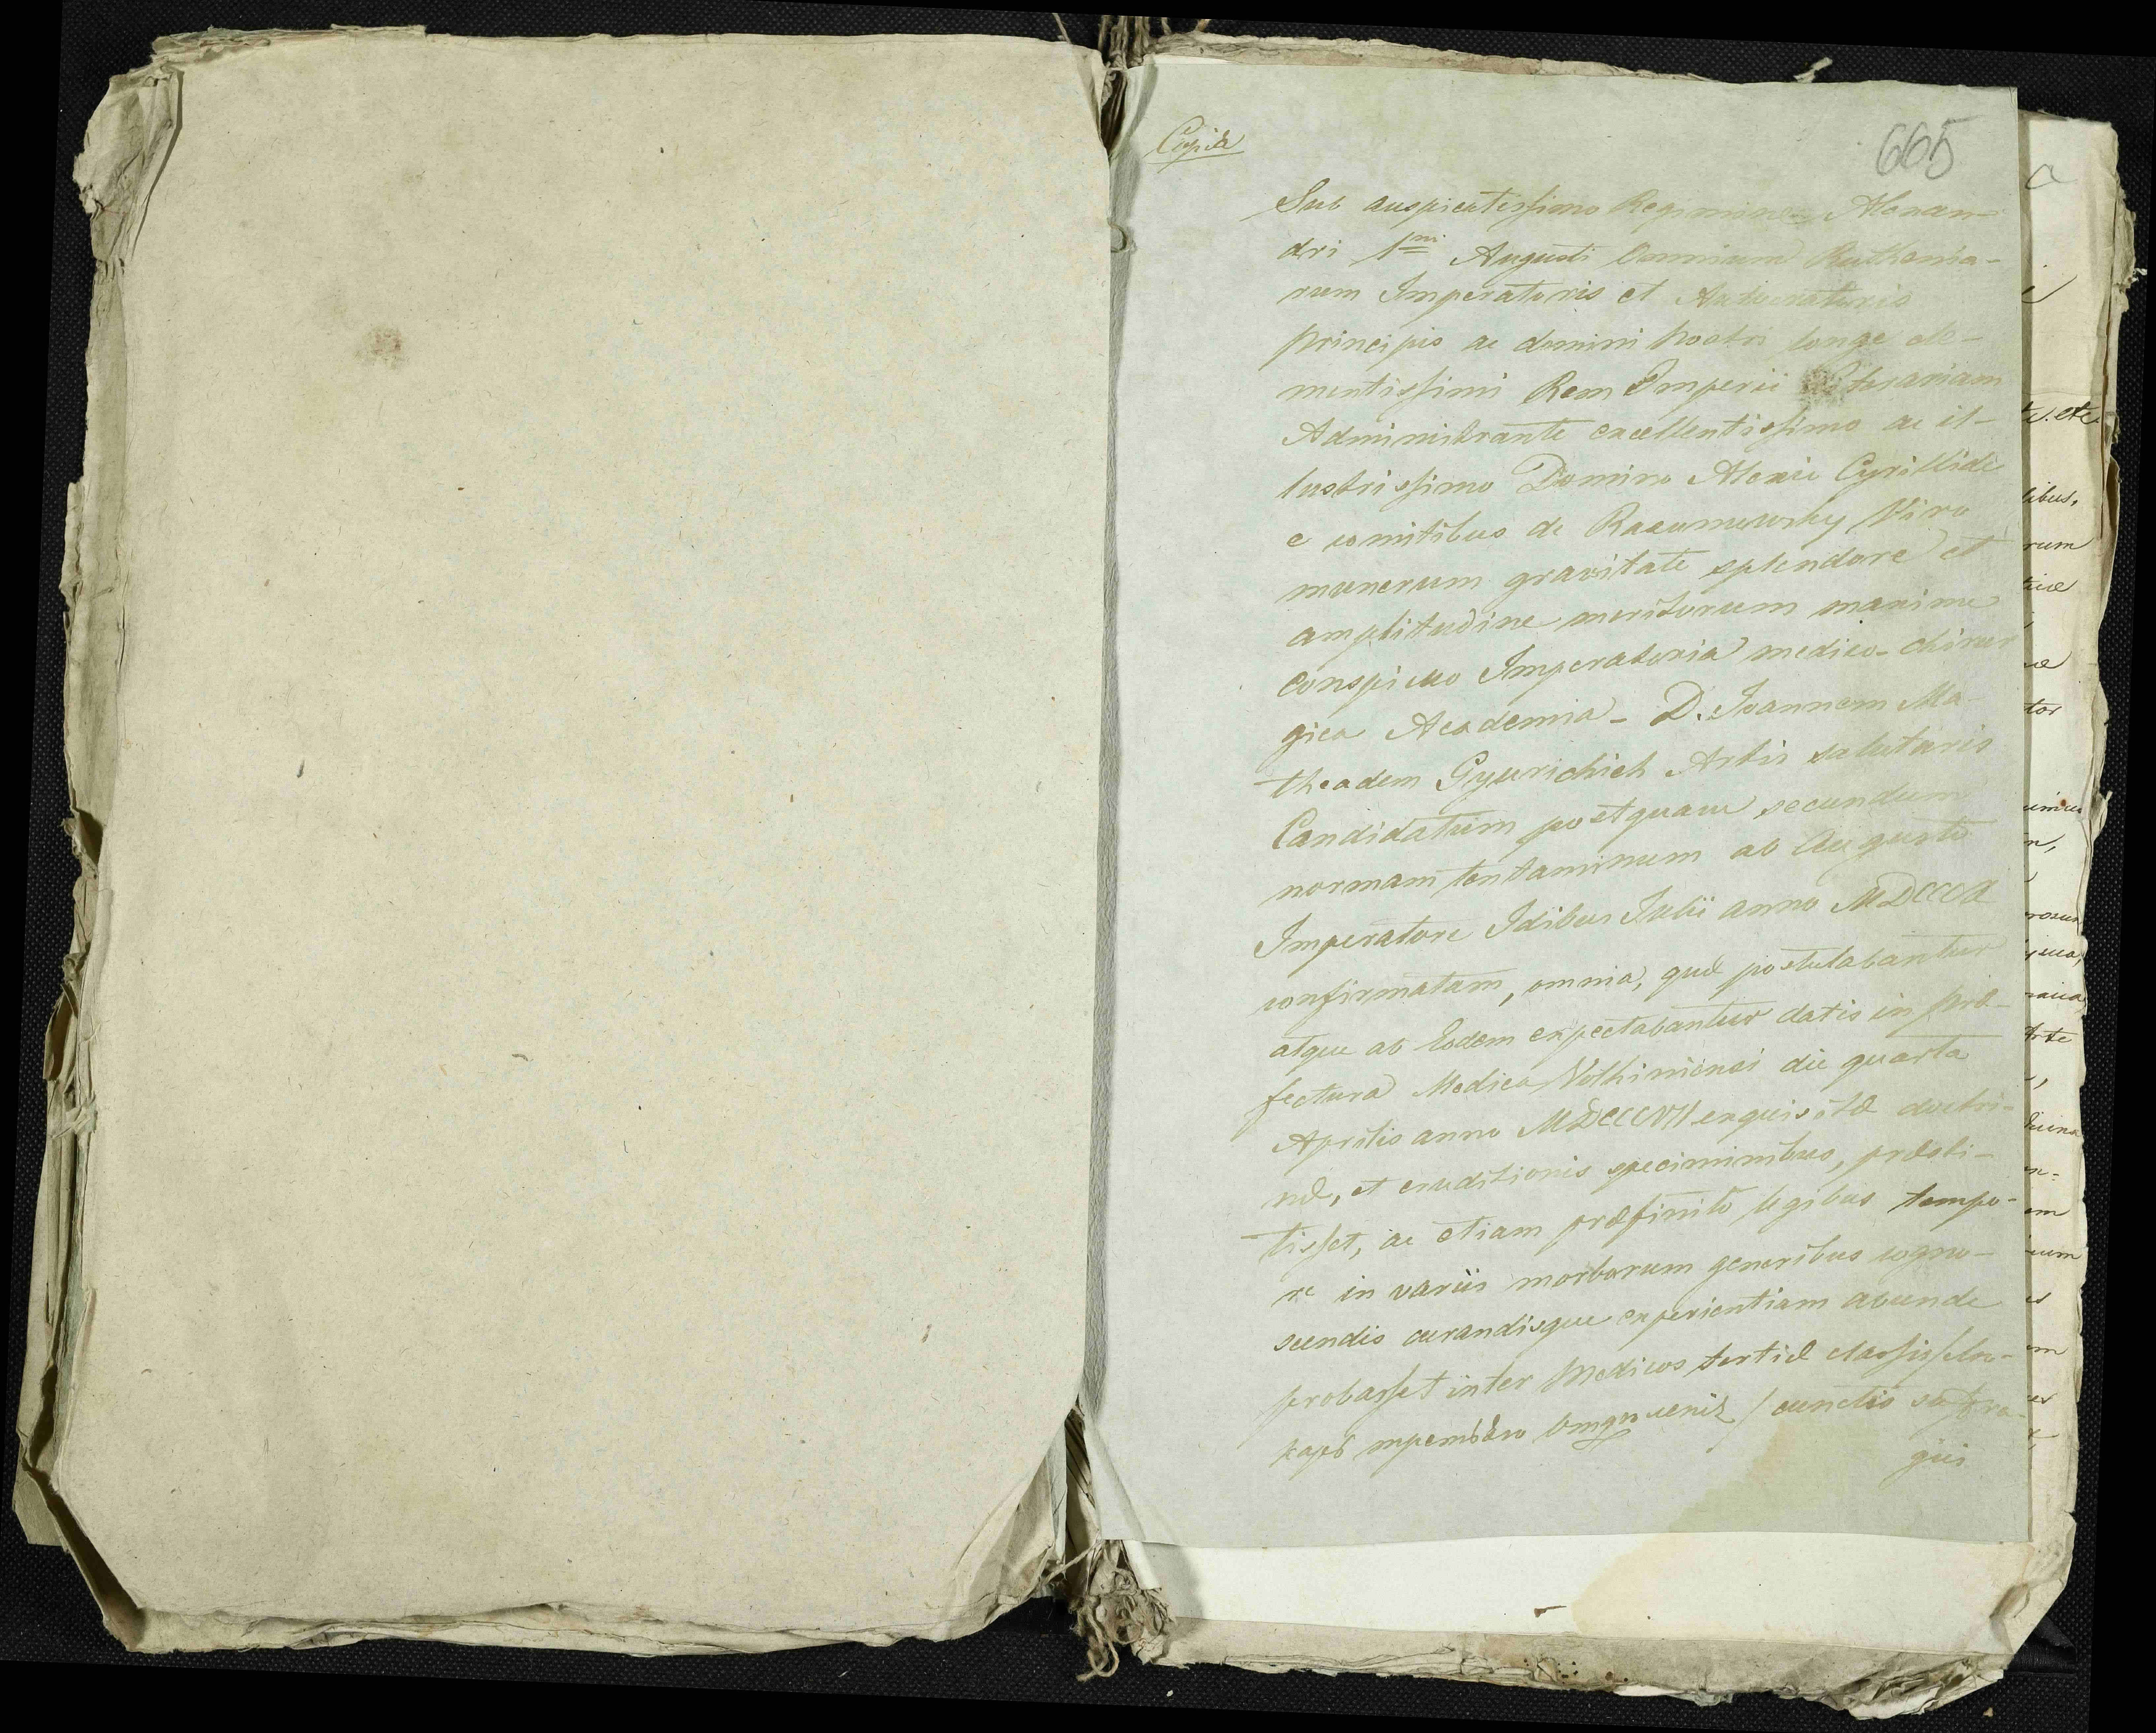 Copia
665
Sub auspicatissimo Regimine Alexan-
dri 1mi Augusti Omnium Rutheniа-
rum Imperatoris et Autocratoris
principis ac domini nostri longe cle-
mentissimi Rem Imperii Literariam
Administrante excellentissimo ac il-
lustrissimo Domino Alexio Cyrillide
e comitibus de Razumowsky Viro
munerum gravitate splendore et
amplitudine meritorum maxime
conspicuo Imperatoria medico-chirur
gica Academia - D. Joannem Ma
theadem Gyurichich Artis salutaris
Candidatum postquam secundum
normam tentaminum ab Augusto
Imperatore Idibus Julii anno MDCCCX
confirmatam, omnia, quæ postulabantur
atque ab Eodem expectabantur datis in præ-
fectura Medica Volhiniensi die quarta
Aprilis anno MDCCCVII exquisitæ doctri-
næ, et eruditionis speciminibus, præsti-
tisset, ac etiam præfinito legibus tempo-
re in variis morborum generibus cogno-
scendis curandisque experientiam abunde
probasset inter Medicos tertiæ classis
cunctis suffra-
giis